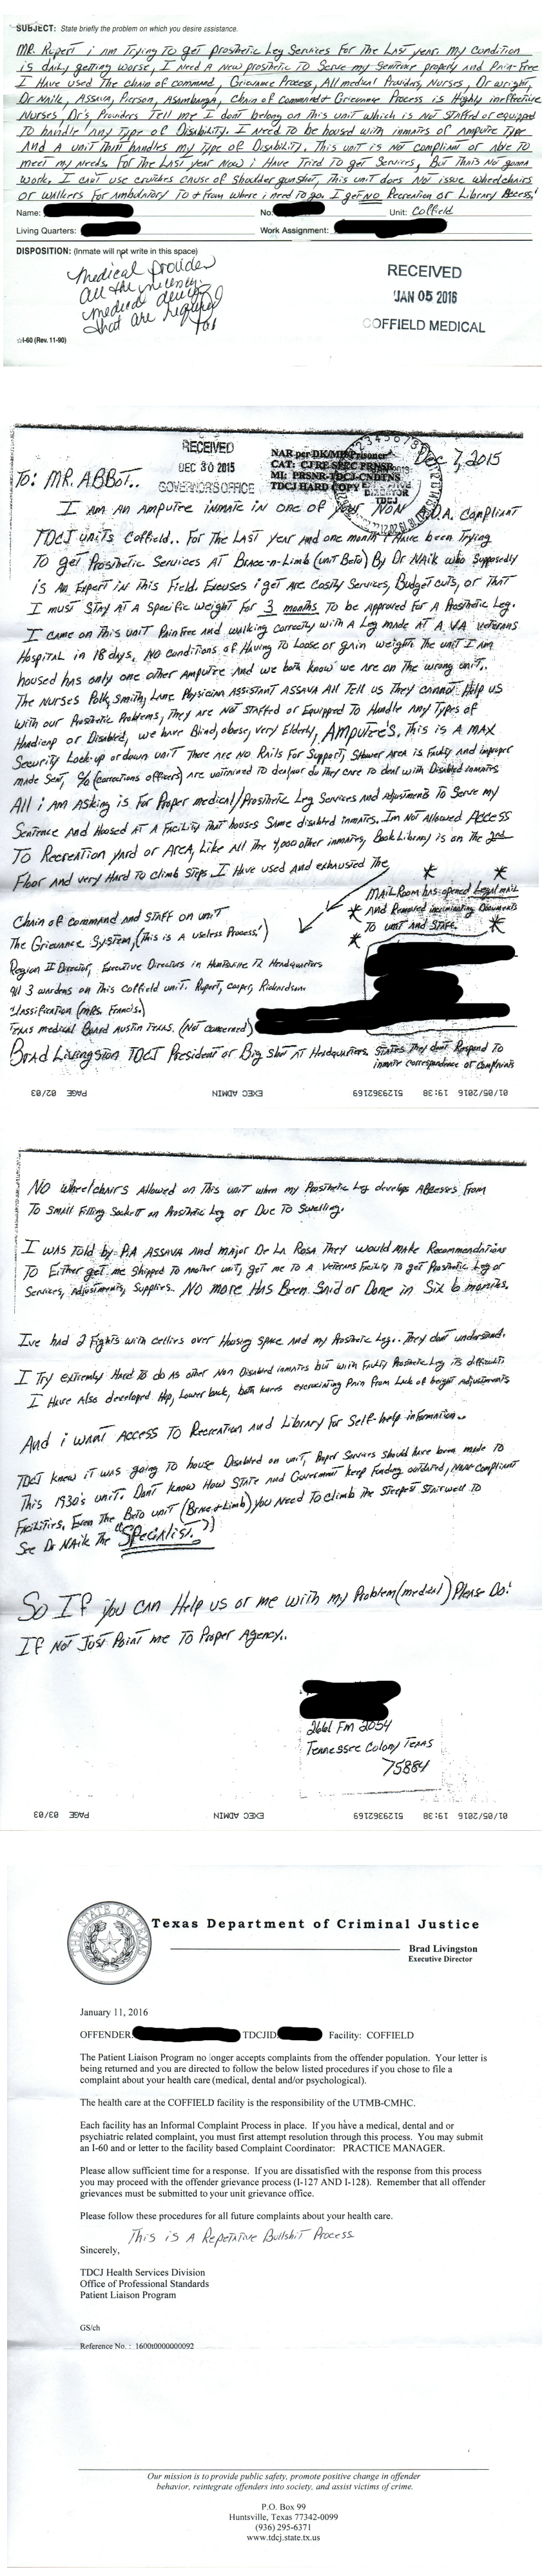 SUBJECT: State briefly the problem on which you desire assistance.
MR. Rupert i am Trying To get prosthetic Leg Services For The Last year. My Condition
is daily getting worse, I need A New prosthetic To Serve my Sentence properly and Pain-Free
I Have used The chain of command, Grievance Process, All medical Providers, Nurses, Dr Wright,
Dr Naik, Assava, Pierson, Chain of Command & Grievance Process is Highly ineffective
Nurses, Dr's, Providers Tell me I dont belong on This unit which is Not Staffed or equipped
To handle Any Type of Disability. I Need To be housed with inmates of Ampute Type
And A unit Than handles my Type of Disability. This unit is not compliant or Able To
meet my Needs. For The Last year Now i Have Tried To get Services, But Thats No gonna
work. I cant use crutches cause of Shoulder gunshot, This unit Does NOT issue wheelchairs
or walkers For Ambulatory To & From where i need To go. I get NO Recreation or Library Access!
Name: No: Unit: Coffield
Living Quarters: Work Assignment:
DISPOSITION: (Inmate will not write in this space)
Medical provides
all the
medical
that are required
RECEIVED
JAN 05 2016
COFFIELD MEDICAL
☆I-60 (Rev. 11-90)
RECEIVED
DEC 30 2015
GOVERNORS OFFICE
NAR per DK/MH Prisoner
CAT: CJ RE SPEC PRNSR
MI: PRSNR-TDCJ-CNDTNS
TDCJ HARD COPY
Dec 7, 2015
TO: MR. ABBOT..
I am AN Amputee inmate in one of your NON A.D.A. Compliant
TDCJ units Coffield.. For The Last year and one month I Have been Trying
To get Prosthetic Services AT Brace-n-Limb (unit Beto) By Dr NAIK who Supposedly
is An Expert in This Field. Excuses i get Are Costly Services, Budget cuts, or That
I must Stay AT A Specific weight For 3 months To be Approved For A Prosthetic Leg.
I came on This unit Pain Free and walking Correctly with A Leg made AT A VA Veterans
Hospital in 18 days, NO Conditions of Having To Loose or gain weight. The unit I am
housed has only one other Amputee And we both know we are on The wrong unit..
The Nurses Polk, Smith, Lane, Physician Assistant ASSAVA All Tell us They Cannot Help us
with our Prosthetic Problems, They are NOT Staffed or Equipped To Handle Any Types of
Handicap or Disabled, we have Blind, obese, very Elderly, AMPUTEE'S. This is A MAX
Security Lock-up or down unit There are No Rails For Support, Shower Area is Faulty and improper
made Seat, C/O (corrections officers) are untrained To deal nor do They care To deal with Disabled inmates
All i am Asking is For Proper medical/Prosthetic Leg Services and Adjustments To Serve my
Sentence And Housed AT A Facility That houses Same disabled inmates. Im Not Allowed Access
To Recreation yard or Area, Like All The 4,000 other inmates, Book Library is on The 2nd
Floor And very Hard To climb Steps. I Have used and exhausted The
Chain of Command and Staff on unit
The Grievance System, (This is A useless Process!)
Region II Director, Executive Directors in Huntsville TX Headquarters
All 3 wardens on This Coffield unit. Rupert, Cooper, Richardson
Classification (mrs. Francis)
Texas medical Board Austin Texas. (Not Concerned)
Brad Livingston TDCJ President or Big Shot At Headquarters. States They dont Respond To
inmate correspondence or Complaints
MAIL Room has opened Legal mail
And Removed incriminating Documents
To unit And Staff.
01/05/2016 19:38 5129362169 EXEC ADMIN PAGE 02/03
NO wheelchairs Allowed on This unit when my Prosthetic Leg develops Absesses From
To Small Fitting Sockett on Prosthetic Leg or Due To Swelling.
I was Told by P.A ASSAVA And Major De La Rosa They would Make Recommendations
To Either get me Shipped To Another unit, get me To A Veterans Facility To get Prosthetic Leg or
Services, Adjustments, Supplies.. NO more Has Been Said or Done in Six 6 months.
Ive had 2 Fights with cellies over Housing Space and my Prosthetic Leg.. They dont understand.
I Try extremely Hard To do As other Non Disabled inmates but with Faulty Prosthetic Leg its difficult.
I Have Also developed Hip, Lower back, both knees excruciating Pain From Lack of height Adjustments
And i want Access To Recreation And Library For Self-help information..
TDCJ knew iT was going To house Disabled on unit, Proper Services Should have been made To
This 1930's unit. Dont know How State and Government keep Funding outdated, Non-Compliant
Facilities. Even The Beto unit (Brace & Limb) you Need To Climb the Steepest Stairwell To
See Dr NAIK The "SPECIALIST."
So If you CAN Help us or me with my Problem (medical) Please Do!
If Not Just Point me To Proper Agency..
2661 FM 2054
Tennessee Colony Texas
75884
01/05/2016 19:38 5129362169 EXEC ADMIN PAGE 03/03
THE STATE OF TEXAS
Texas Department of Criminal Justice
Brad Livingston
Executive Director
January 11, 2016
OFFENDER: TDCJID: Facility: COFFIELD
The Patient Liaison Program no longer accepts complaints from the offender population. Your letter is
being returned and you are directed to follow the below listed procedures if you chose to file a
complaint about your health care (medical, dental and/or psychological).
The health care at the COFFIELD facility is the responsibility of the UTMB-CMHC.
Each facility has an Informal Complaint Process in place. If you have a medical, dental and or
psychiatric related complaint, you must first attempt resolution through this process. You may submit
an I-60 and or letter to the facility based Complaint Coordinator: PRACTICE MANAGER.
Please allow sufficient time for a response. If you are dissatisfied with the response from this process
you may proceed with the offender grievance process (I-127 AND I-128). Remember that all offender
grievances must be submitted to your unit grievance office.
Please follow these procedures for all future complaints about your health care.
This is A Repetative Bullshit Process
Sincerely,
TDCJ Health Services Division
Office of Professional Standards
Patient Liaison Program
GS/ch
Reference No. : 1600t0000000092
Our mission is to provide public safety, promote positive change in offender
behavior, reintegrate offenders into society, and assist victims of crime.
P.O. Box 99
Huntsville, Texas 77342-0099
(936) 295-6371
www.tdcj.state.tx.us